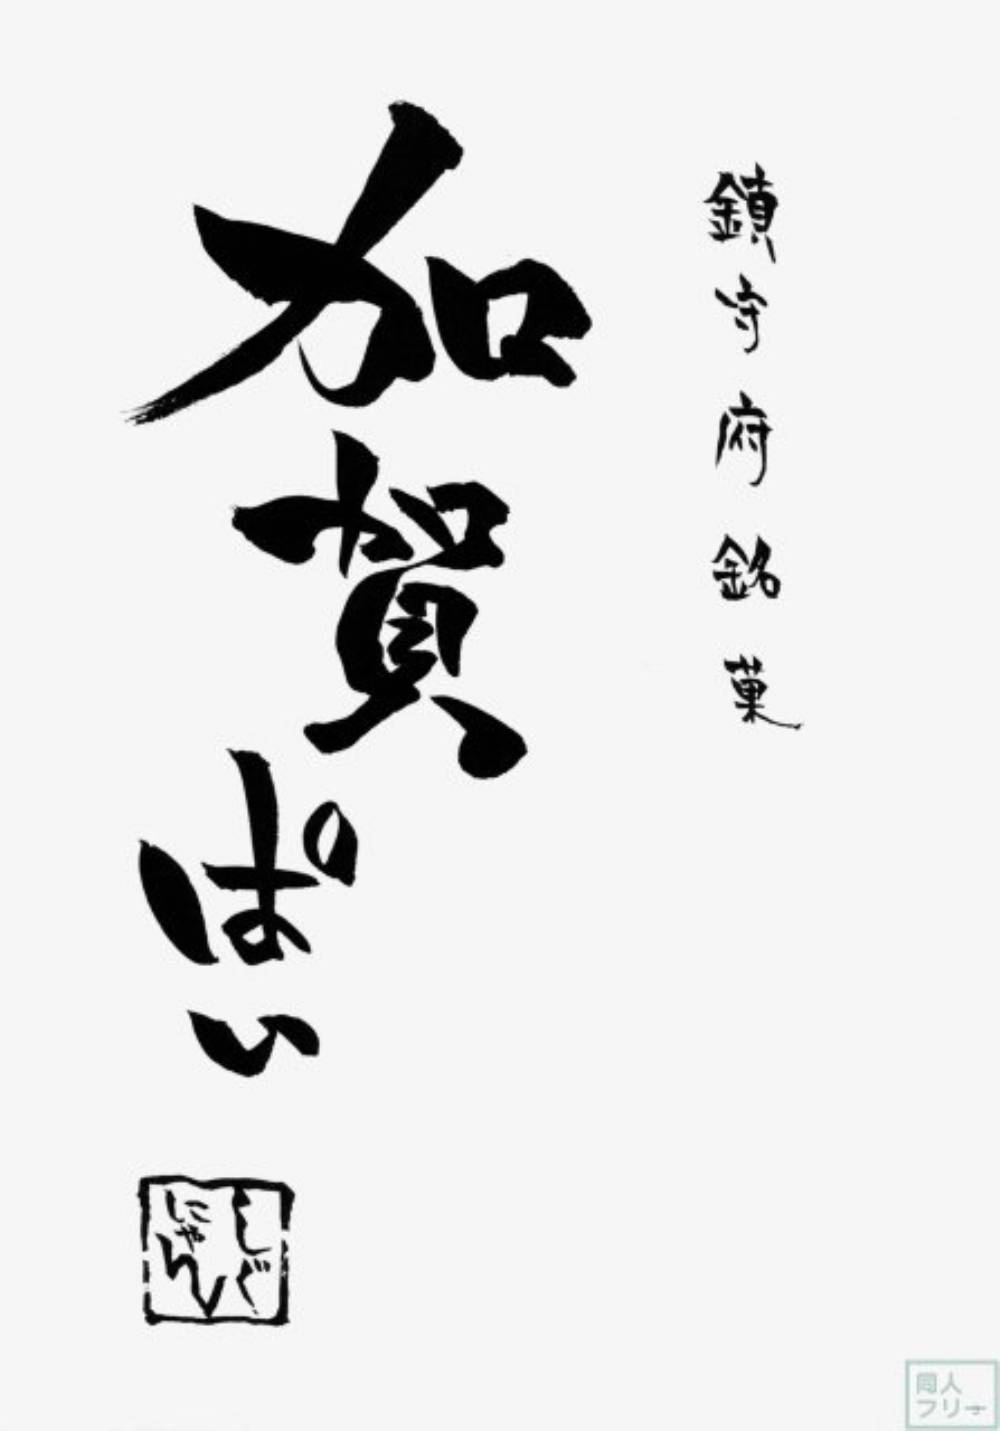 鎮守府銘菓
加賀ぱい
しぐ
にゃん
同人
フリー